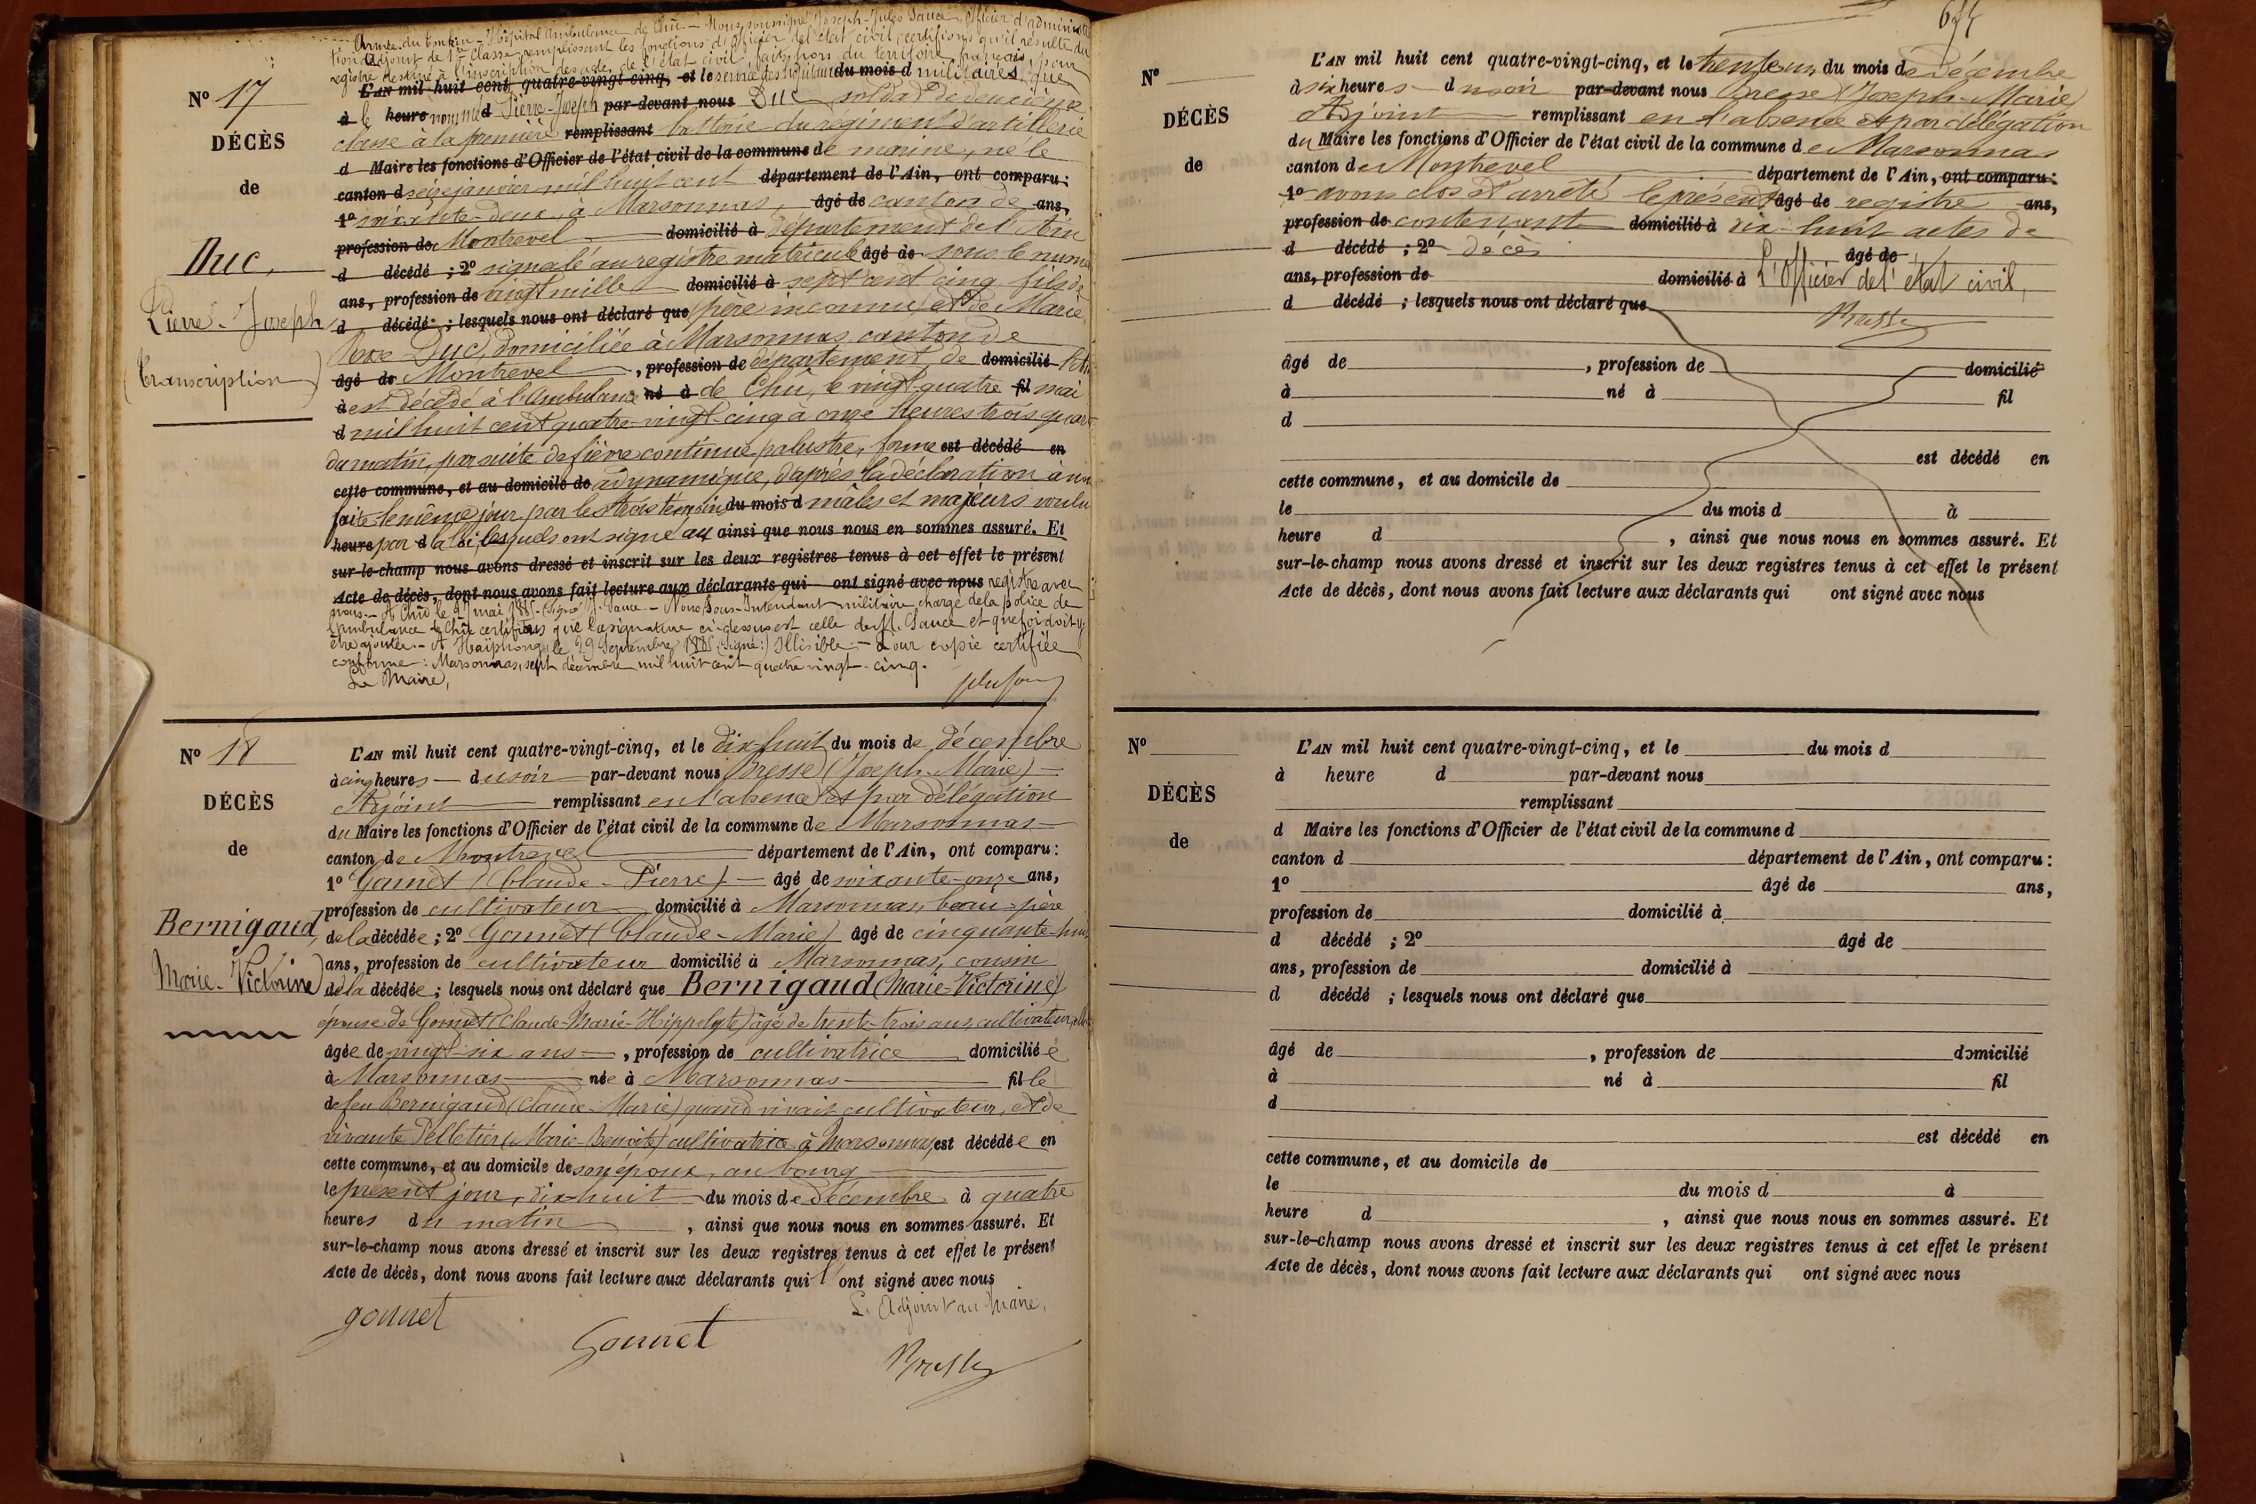 Armée du Tonkin – Hôpital Ambulance de Chû – Nous, soussigné, Joseph-Jules Sauce, Officier d'administra
tion adjoint de 1re classe remplissant les fonctions d'officier de l'état civil, certifions qu'il résulte du
registre destiné à l'inscription des actes de l'état civil faits hors du territoire français, pour
L'AN mil huit cent quatre-vingt-cinq, et le service des hôpitaux du mois d militaires, que
No 17
à le heure nommé d Pierre-Joseph par-devant nous Duc, soldat de deuxième
classe à la première remplissant batterie du régiment d'artillerie
DÉCÈS
d Maire les fonctions d'Officier de l'état civil de la commune de marine, né le
canton d seize janvier mil huit cent département de l'Ain, ont comparu:
de
1o soixante-deux, à Marsonnas, âgé de canton de ans,
profession de Montrevel domicilié à département de l'Ain
Duc,
d décédé ; 2o signalé au registre matricule âgé de sous le numé
ans, profession de vingt mille domicilié à sept cent cinq, fils de
Pierre-Joseph
d décédé ; lesquels nous ont déclaré que père inconnu et de Marie
Duc, domiciliée à Marsonnas, canton de
(Transcription)
âgé de Montrevel, profession de département de domicilié l'Ain
à est décédé à l'Ambulance né à de Chû, le vingt-quatre fil mai
d mil huit cent quatre-vingt-cinq à onze heures trois quart
du matin, par suite de fièvre continue palustre, forme est décédé en
cette commune, et au domicile de adynamique, d'après la déclaration à nous
faite le même jour par les trois témoins du mois d mâles et majeurs voulu
heure par d la loi lesquels ont signé au ainsi que nous nous en sommes assuré. Et
sur-le-champ nous avons dressé et inscrit sur les deux registres tenus à cet effet le présent
Acte de décès, dont nous avons fait lecture aux déclarants qui ont signé avec nous registre avec
nous. – A Chû le 27 mai 1885. (Signé) J. Sauce – Nous, Sous-Intendant militaire chargé de la police de
l'ambulance de Chû certifions que la signature ci-dessus est celle de M. Sauce et que foi doit y
être ajoutée. – A Haïphong, le 29 Septembre 1885 (Signé:) Illisible – Pour copie certifiée
conforme: Marsonnas, sept décembre mil huit cent quatre vingt-cinq.
Le Maire,
No 18
L'AN mil huit cent quatre-vingt-cinq, et le dix-huit du mois de décembre
à cinq heures du soir par-devant nous Bresse (Joseph-Marie)
DÉCÈS
Adjoint remplissant en l'absence et par délégation
du Maire les fonctions d'Officier de l'état civil de la commune de Marsonnas
de
canton de Montrevel département de l'Ain, ont comparu:
1o Gonnet (Claude-Pierre) âgé de soixante-onze ans,
profession de cultivateur domicilié à Marsonnas, beau-père
Bernigaud,
de la décédée; 2o Gonnet (Claude-Marie) âgé de cinquante-huit
ans, profession de cultivateur domicilié à Marsonnas, cousin
Marie-Victorine
de la décédée; lesquels nous ont déclaré que Bernigaud (Marie-Victorine)
épouse de Gonnet (Claude-Marie-Hippolyte) âgé de trente-trois ans, cultivateur, elle
âgée de vingt-six ans, profession de cultivatrice domiciliée
à Marsonnas née à Marsonnas fille
de feu Bernigaud (Claude-Marie) quand vivait cultivateur, et de
vivante Pelletier (Marie-Benoîte) cultivatrice à Marsonnas, est décédée en
cette commune, et au domicile de son époux, au bourg
le présent jour, dix-huit du mois de décembre à quatre
heures du matin, ainsi que nous nous en sommes assuré. Et
sur-le-champ nous avons dressé et inscrit sur les deux registres tenus à cet effet le présent
Acte de décès, dont nous avons fait lecture aux déclarants qui ont signé avec nous
L'Adjoint au Maire,
gonnet
Gonnet
Bresse
L'AN mil huit cent quatre-vingt-cinq, et le trente-un du mois de décembre
No
à six heures du soir par-devant nous Bresse (Joseph-Marie)
DÉCÈS
Adjoint remplissant en l'absence et par délégation
du Maire les fonctions d'Officier de l'état civil de la commune de Marsonnas
de
canton de Montrevel département de l'Ain, ont comparu:
1o avons clos et arrêté le présent âgé de registre ans,
profession de contenant domicilié à dix-huit actes de
d décédé ; 2o décès âgé de
ans, profession de domicilié à L'Officier de l'état civil,
d décédé ; lesquels nous ont déclaré que
Bresse
âgé de , profession de domicilié
à né à fil
d
est décédé en
cette commune, et au domicile de
le du mois d à
heure d , ainsi que nous nous en sommes assuré. Et
sur-le-champ nous avons dressé et inscrit sur les deux registres tenus à cet effet le présent
Acte de décès, dont nous avons fait lecture aux déclarants qui ont signé avec nous
No
L'AN mil huit cent quatre-vingt-cinq, et le du mois d
à heure d par-devant nous
DÉCÈS
remplissant
d Maire les fonctions d'Officier de l'état civil de la commune d
de
canton d département de l'Ain, ont comparu:
1o âgé de ans,
profession de domicilié à
d décédé ; 2o âgé de
ans, profession de domicilié à
d décédé ; lesquels nous ont déclaré que
âgé de , profession de domicilié
à né à fil
d
est décédé en
cette commune, et au domicile de
le du mois d à
heure d , ainsi que nous nous en sommes assuré. Et
sur-le-champ nous avons dressé et inscrit sur les deux registres tenus à cet effet le présent
Acte de décès, dont nous avons fait lecture aux déclarants qui ont signé avec nous